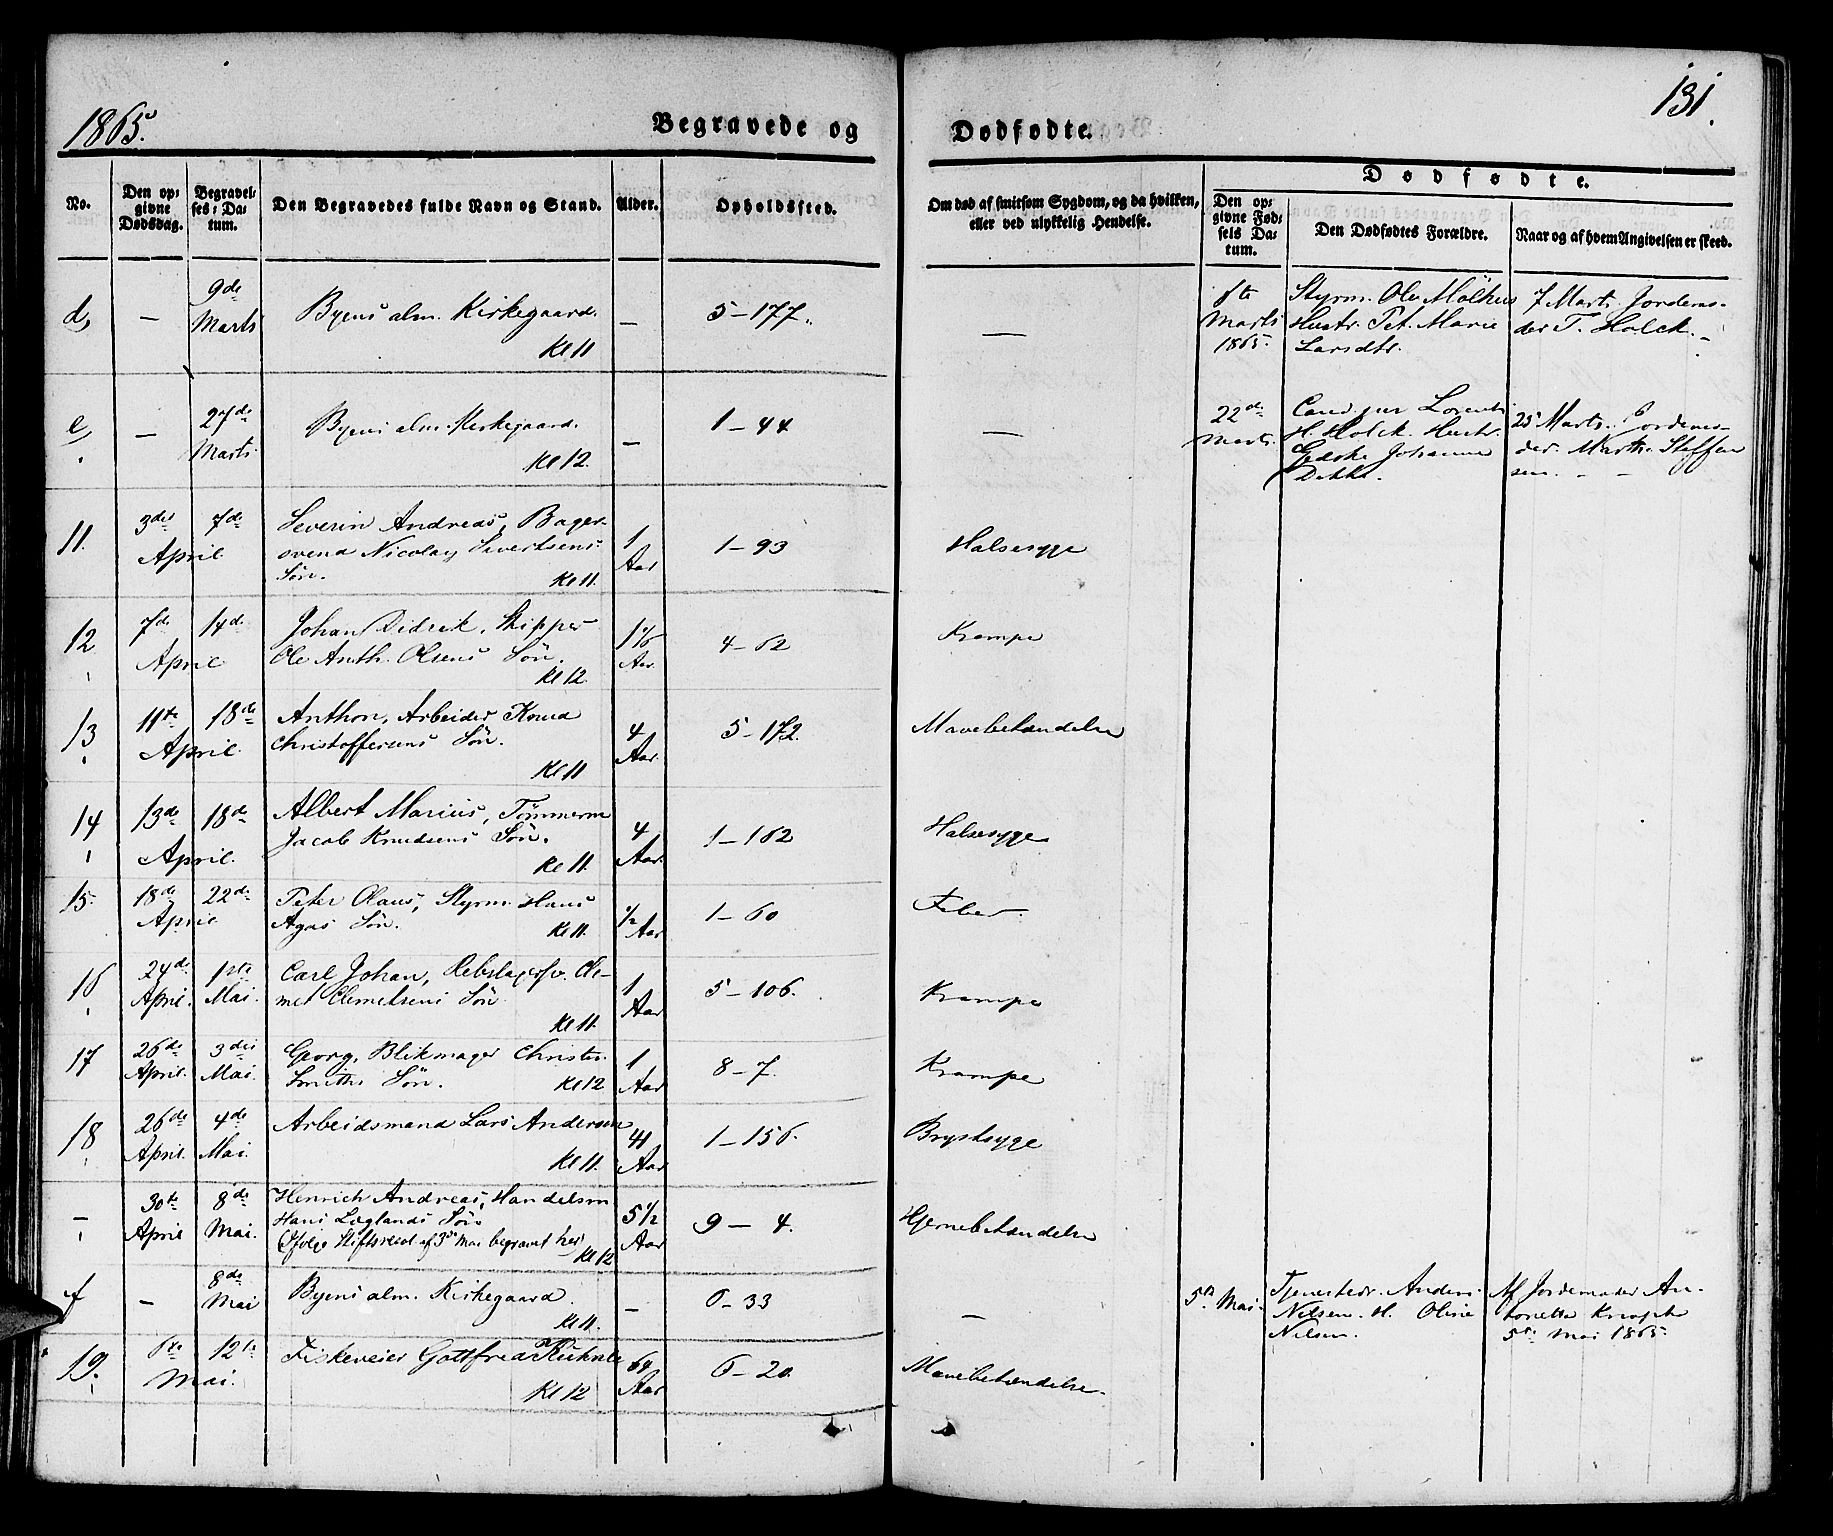 1865.
Begravede og
Dødfødte.
131.
No.
Den op:
givne
Dødsdag.
Begravel:
ses: Da:
tum.
Den Begravedes fulde Navn og Stand.
Alder.
Opholdssted.
Om død af smitsom Sygdom, og da hvilken,
eller ved ulykkelig Hendelse.
Dødfødte.
Den op:
givne Fød:
sels Da:
tum.
Den Dødfødtes Forældre.
Naar og af hvem Angivelsen er skeed.
d, — 9de Marts
Byens alm. Kirkegaard.
Kl 11
—
5-177.
—
1ste Marts 1865.
Styrm. Ole
Hustr. Pet. Marie
Larsdtr.
7 Marts Jordemo-
der T. Holck.
e, — 27de Marts
Byens alm. Kirkegaard.
Kl 12.
—
1-44
—
22de Marts
Cand. jur Lorents
H. Holck. Hustr.
Gedske Johanne
Dekke.
25 Marts. Jordemo-
der Marth. Steffen
sen.
11. 3die 7de April
Severin Andreas, Bager-
svend Nicolay Sivertsens
Søn. Kl 11.
1 Aar
1-93
Halsesyge
12 7de 14de April
Johan Didrik, Skipper
Ole Anth. Olsens Søn.
Kl 12.
Aar.
4-62
Krampe
13 11te 18de April.
Anthon, Arbeider Knud
Christoffersens Søn.
Kl 11
4 Aar.
5-172.
Mavebetændelse
14 13de 18de April.
Albert Marius, Tömmerm
Jacob Knudsens Søn.
Kl 11.
4 Aar.
1-162
Halsesyge
15. 18de 22de April
Peter Olaus, Styrm. Hans
Agas Søn. Kl 11.
1/2 Aar
1-60
Feber.
16 24de April. 1ste Mai.
Carl Johan, Rebslagersv. Cle-
met Clemetsens Søn.
Kl 11.
1 Aar
5-106.
Krampe
17 26de April. 3die Mai.
Georg, Blikmager Christ.
Smiths Søn. Kl 12
1 Aar
8-7.
Krampe
18 26de April. 4de Mai.
Arbeidsmand Lars Andersen
Kl 11.
41 Aar
1-156.
Brystsyge
— 30te April 8de Mai.
Henrich Andreas, Handelsm
Hans Løglands Søn
Ifølge Stiftsresol. af 3die Mai begravet her
Kl 12
5 1/2 Aar
9-4.
Hjernebetændelse
f — 8de Mai
Byens alm. Kirkegaard.
Kl 11.
—
6-33
—
5te Mai.
Tjenestedr. Anders
Nilsen. H. Oline
Nilsen.
Af Jordemoder An-
tonette
5te Mai 1865.
19. 6te 12te Mai.
Fiskeveier Gottfried Kuhnle
Kl 12
64 Aar
6-20.
Mavebetændelse.